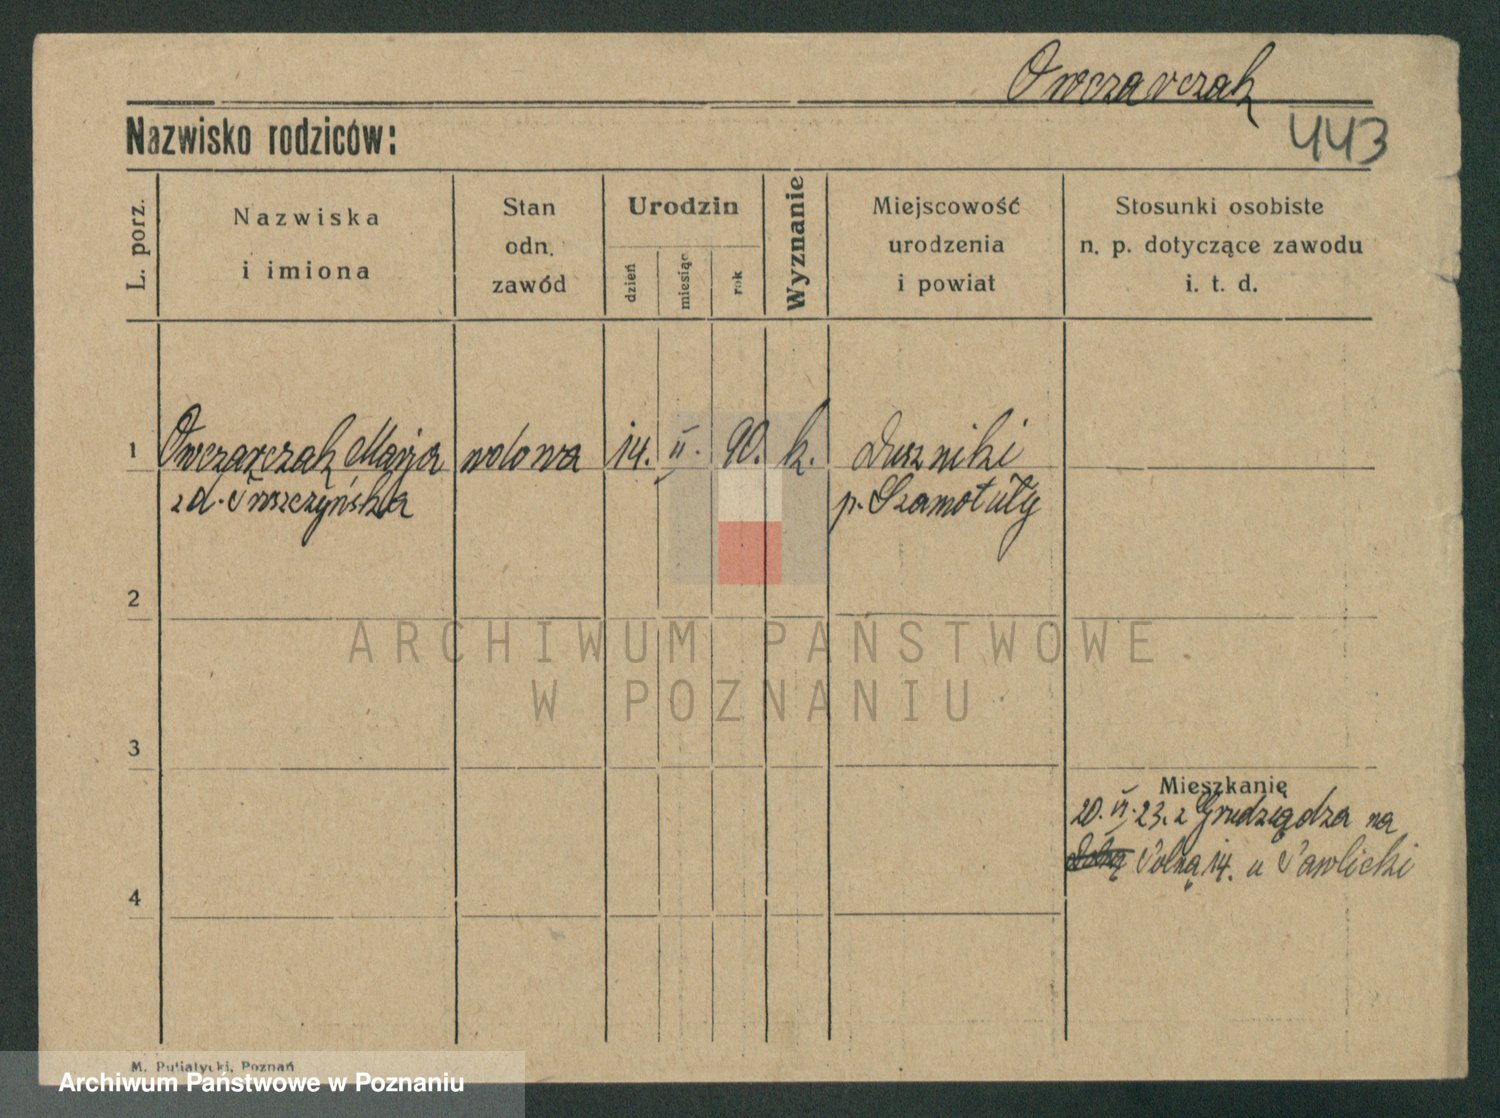 Owczarczak
443
Nazwisko rodziców:
L. porz.
Nazwiska
i imiona
Stan
odn.
zawód
Urodzin
dzień
miesiąc
rok
Wyznanie
Miejscowość
urodzenia
i powiat
Stosunki osobiste
n. p. dotyczące zawodu
i. t. d.
1 Owczarczak Marja wdowa 14. II. 90. k. Duszniki
zd. p. Szamotuły
2
3
4
ARCHIWUM PAŃSTWOWE
W POZNANIU
Mieszkanie
20. VI. 23. z Grudziądza na
Polną 14. u Pawlicki
M. Putiatycki, Poznań
Archiwum Państwowe w Poznaniu